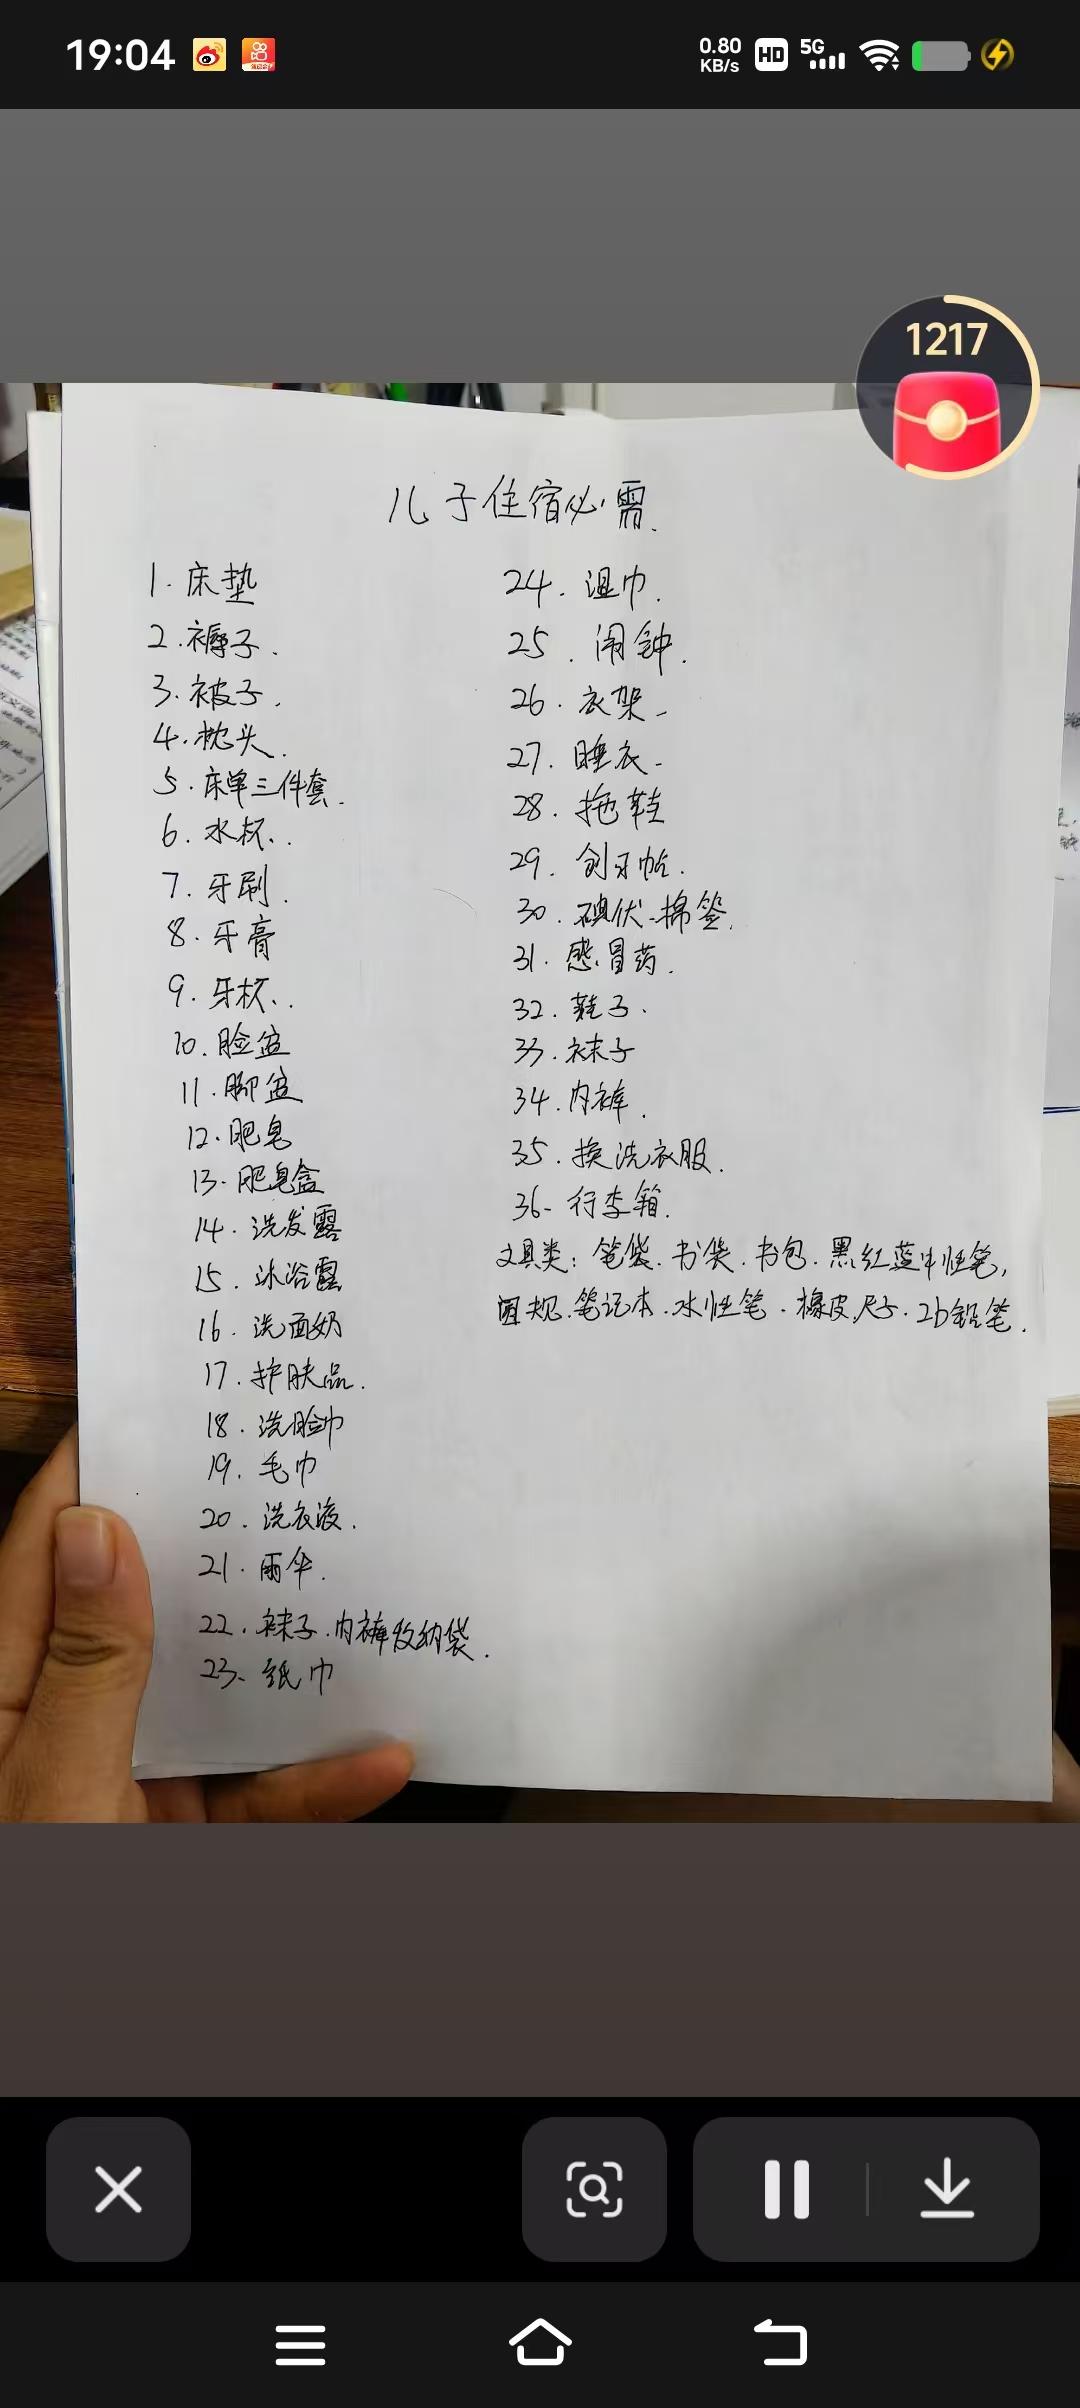 19:04
0.80
KB/s
HD
5G
1217
儿子住宿必需.
1.床垫
2.褥子.
3.被子.
4.枕头.
5.床单三件套.
6.水杯.
7.牙刷.
8.牙膏
9.牙杯.
10.脸盆
11.脚盆
12.肥皂
13.肥皂盒
14.洗发露
15.沐浴露
16.洗面奶
17.护肤品.
18.洗脸巾
19.毛巾
20.洗衣液.
21.雨伞.
22.袜子.内裤收纳袋.
23.纸巾
24.湿巾.
25.闹钟.
26.衣架.
27.睡衣.
28.拖鞋
29.创牙帖.
30.碘伏.棉签.
31.感冒药.
32.鞋子.
33.袜子
34.内裤.
35.换洗衣服.
36.行李箱.
文具类:笔袋.书袋.书包.黑红蓝中性笔,
圆规.笔记本.水性笔.橡皮.尺子.2b铅笔.